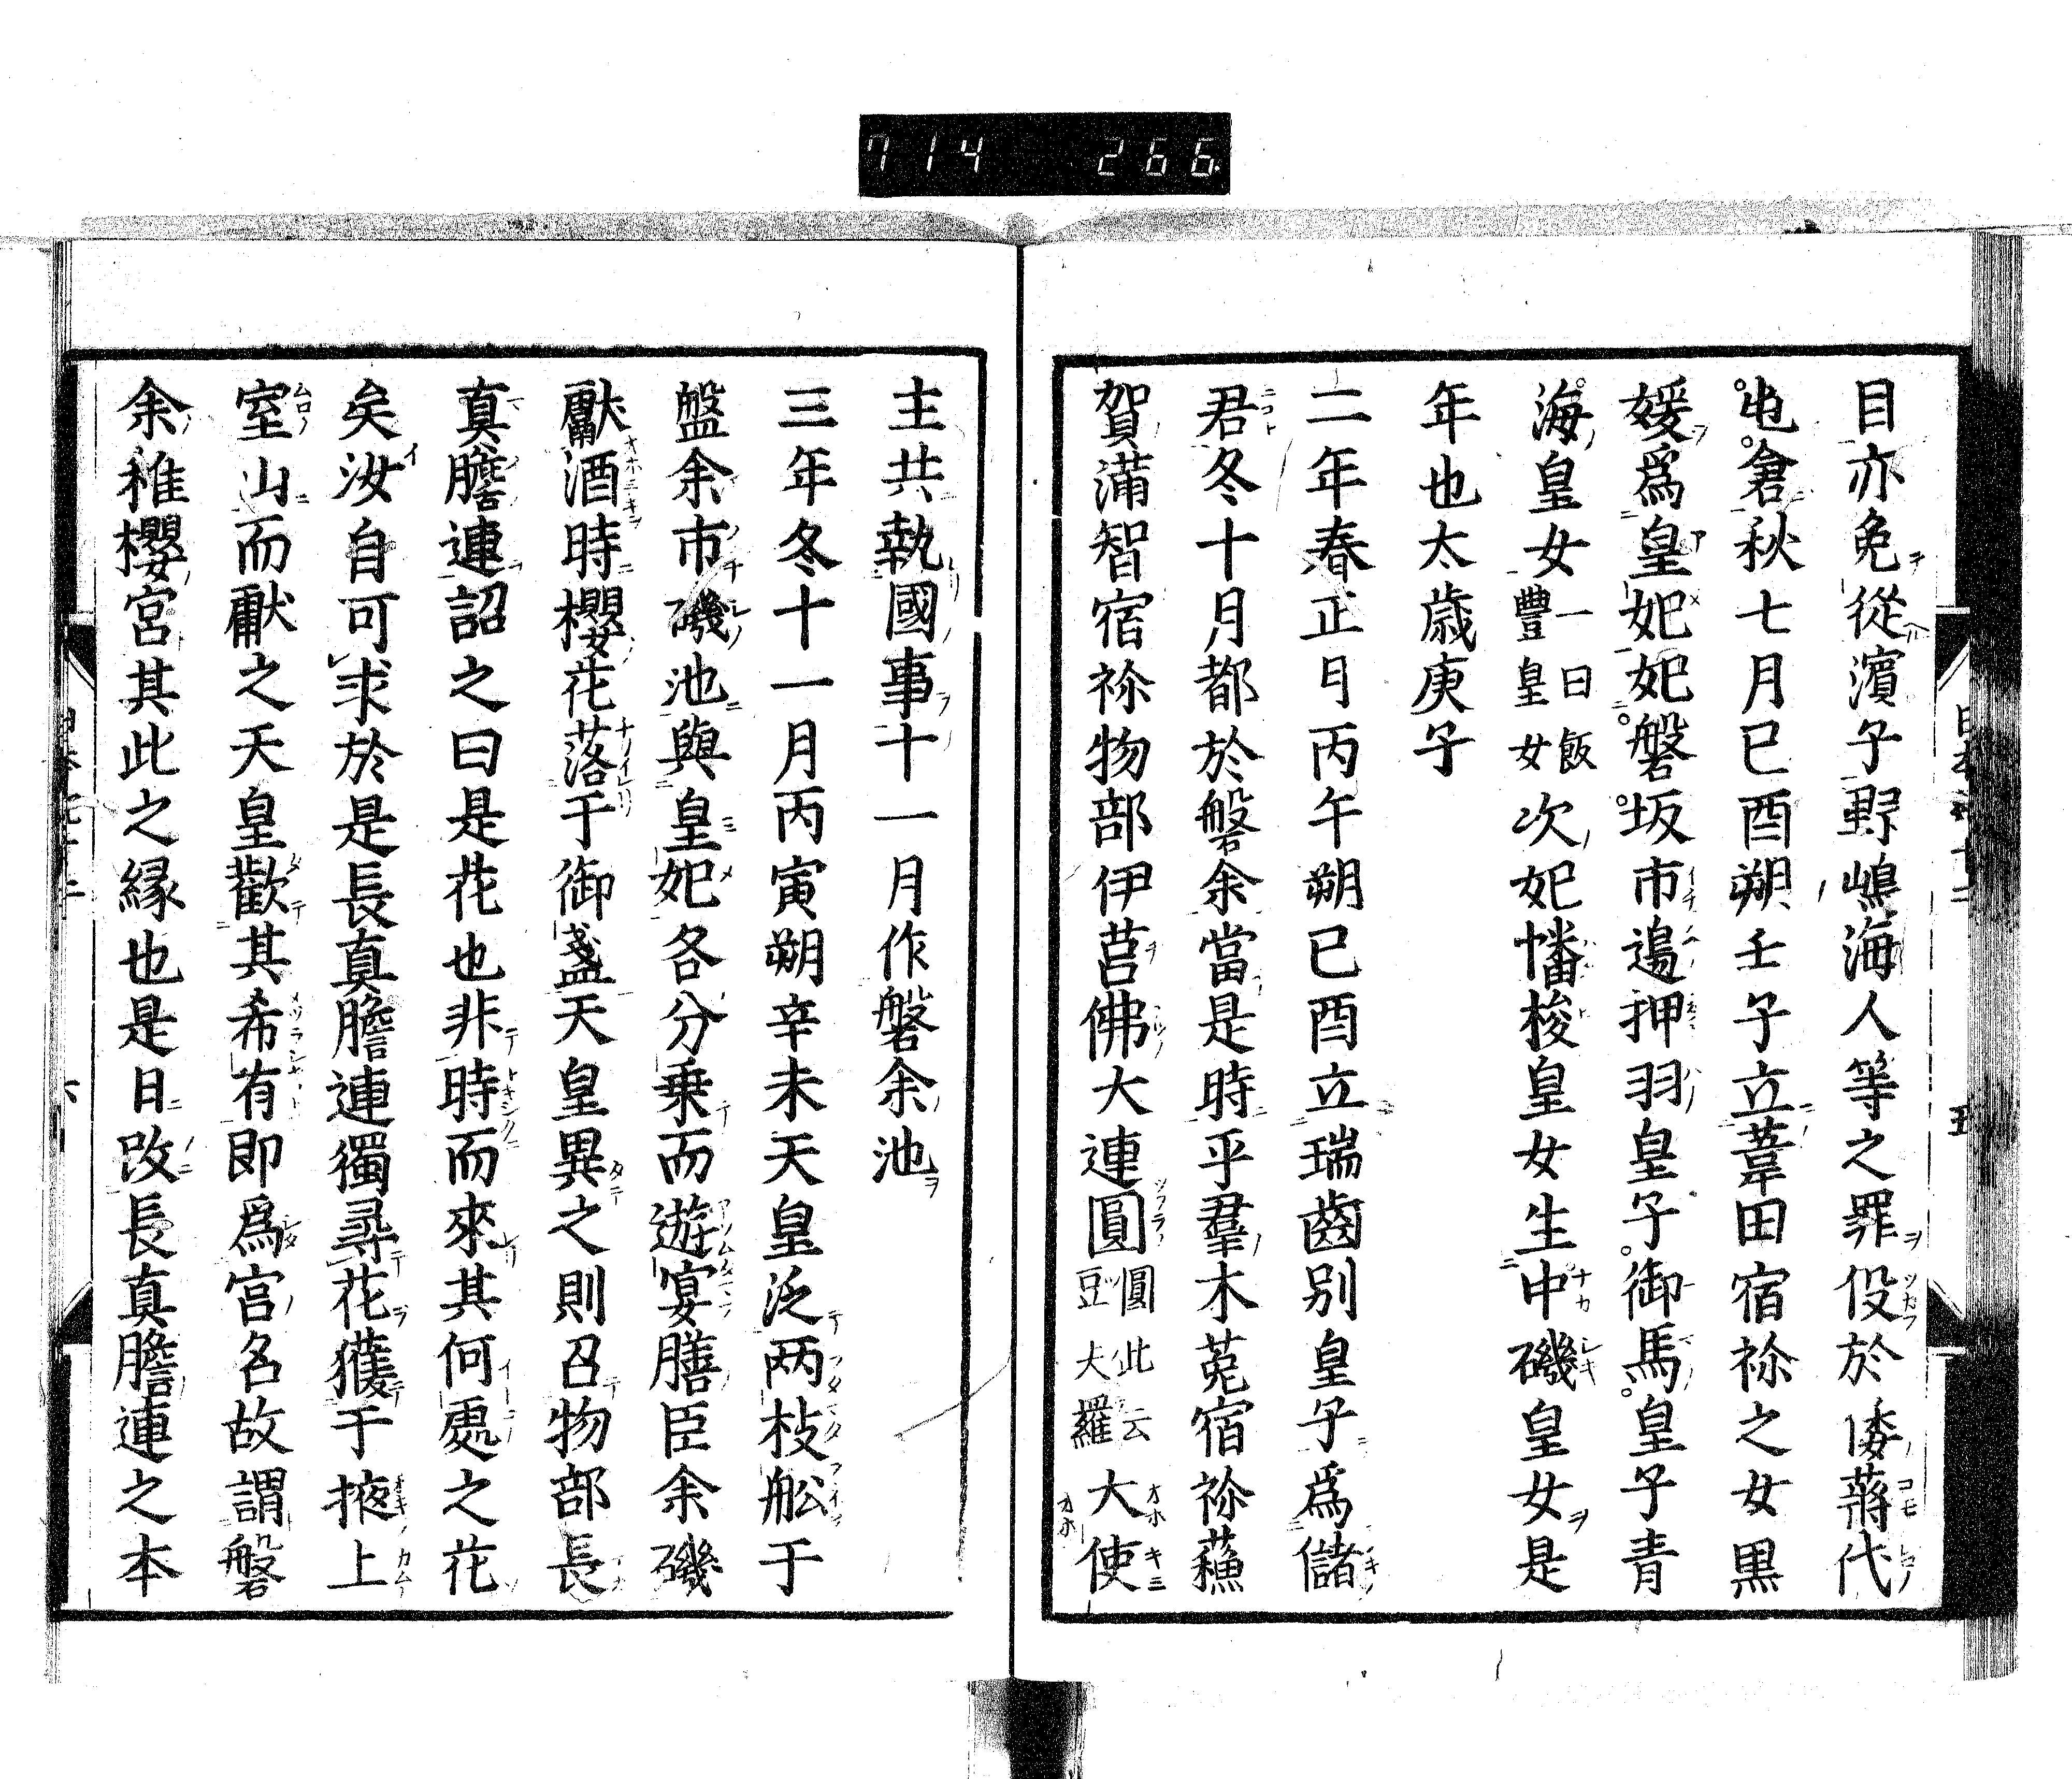 714 266
目亦免從濱子野嶋海人等之罪役於倭蔣代
屯倉秋七月已酉朔壬子立葦田宿祢之女黒
媛爲皇妃妃磐坂市邉押羽皇子御馬皇子青
海皇女一曰飯豐皇女次妃幡梭皇女生中磯皇女是
年也太歳庚子
二年春正月丙午朔已酉立瑞齒別皇子爲儲
君冬十月都於磐余當是時乎羣木莵宿祢蘓
賀蒲智宿祢物部伊莒佛大連圓圓此云豆夫羅大使
主共執國事十一月作磐余池
三年冬十一月丙寅朔辛未天皇泛两枝舩于
盤余市磯池與皇妃各分乗而遊宴膳臣余磯
獻酒時櫻花落于御盞天皇異之則召物部長
真膽連詔之曰是花也非時而來其何處之花
矣汝自可求於是長真膽連獨尋花獲于掖上
室山而獻之天皇歡其希有即爲宮名故謂磐
余稚櫻宮其此之縁也是日改長真膽連之本